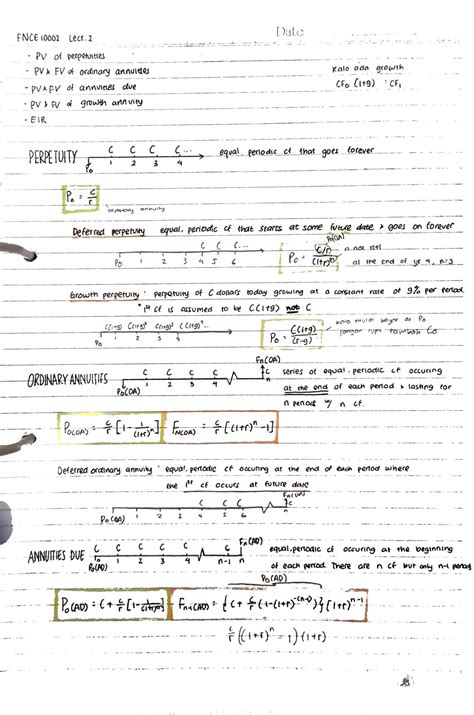 Date
FNCE 10002 Lect. 2
- PV of perpetuities
- PV & FV of ordinary annuities
- PV & FV of annuities due
- PV & FV of growth annuity
- EIR
Kalo ada growth
CF₀ (1+g) = CF₁
PERPETUITY
C C C C...
P₀ 1 2 3 4
equal, periodic cf that goes forever
P₀ = C/r
ordinary annuity
Deferred perpetuity equal, periodic cf that starts at some future date & goes on forever
C C C...
P₀ 1 2 3 4 5 6
P₀ = (C/r)/(1+r)ⁿ
n not n+1
at the end of yr 4, n=3
Growth perpetuity : perpetuity of C dollars today growing at a constant rate of g% per period
*1st cf is assumed to be C(1+g) not C
C(1+g) C(1+g)² C(1+g)³ C(1+g)⁴...
P₀ 1 2 3 4
P₀ = C(1+g)/(r-g)
ORDINARY ANNUITIES
C C C C C
Fn(OA)
P₀(OA) 1 2 3 4 n
series of equal, periodic cf occuring
at the end of each period & lasting for
n period w/ n cf.
P₀(OA) = C/r [1 - 1/(1+r)ⁿ]
Fn(OA) = C/r [(1+r)ⁿ - 1]
Deferred ordinary annuity : equal, periodic cf occuring at the end of each period where
the 1st cf occurs at future date
C C C C
P₀(OA) 1 2 3 4 5 6 n
ANNUITIES DUE
C C C C C C
Fn(AD)
P₀(AD) 1 2 3 4 n-1 n
equal, periodic cf occuring at the beginning
of each period. There are n cf but only n-1 period
P₀(AD)
P₀(AD) = C + C/r [1 - 1/(1+r)ⁿ⁻¹]
Fn(AD) = {C + C/r (1-(1+r)^-(n-1))} [1+r]ⁿ⁻¹
C/r ((1+r)ⁿ - 1) (1+r)